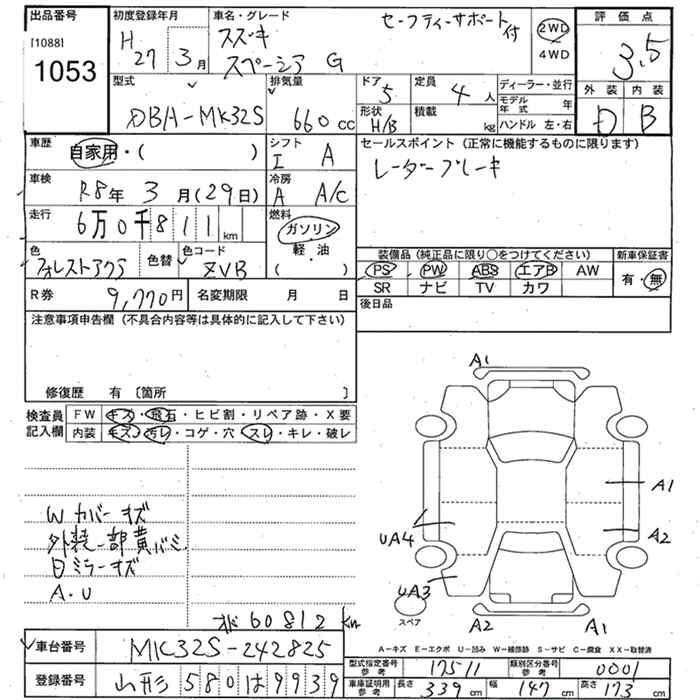 出品番号
[1088]
1053
初度登録年月
H 27 3月
車名・グレード
スズキ
スペーシア G
セーフティーサポート付
2WD
4WD
評価点
3.5
外装 内装
D B
型式
DBA-MK32S
排気量
660cc
ドア
5
形状
H/B
定員
4人
積載
kg
ディーラー・並行
モデル年式 年
ハンドル 左・右
車歴
自家用・( )
シフト
I A
車検
R8年 3月(29日)
冷房
A A/C
走行
6万0千811km
燃料
ガソリン
軽・油
( )
色
色替
色コード
ZVB
R券
9,770円
名変期限 月 日
セールスポイント(正常に機能するものに限ります)
レーダーブレーキ
装備品(純正品に限り○をつけてください)
PS PW ABS エアB AW
SR ナビ TV カワ
新車保証書
有・無
後日品
注意事項申告欄(不具合内容等は具体的に記入して下さい)
修復歴 有 〔箇所 〕
検査員記入欄
FW キズ・飛石・ヒビ割・リペア跡・X要
内装 キズ・汚レ・コゲ・穴・スレ・キレ・破レ
Wカバーキズ
外装一部黄バミ
日ミラーキズ
A.U
60812km
A1
A1
A2
UA4
UA3
A2
A1
スペア
A-キズ E-エクボ U-凹み W-補修跡 S-サビ C-腐食 XX-取替済
車台番号
MK32S-242825
登録番号
山形 580 は 9939
型式指定番号 参考
17511
類別区分番号 参考
0001
車庫証明用 参考
長さ 339cm 幅 147cm 高さ 173cm